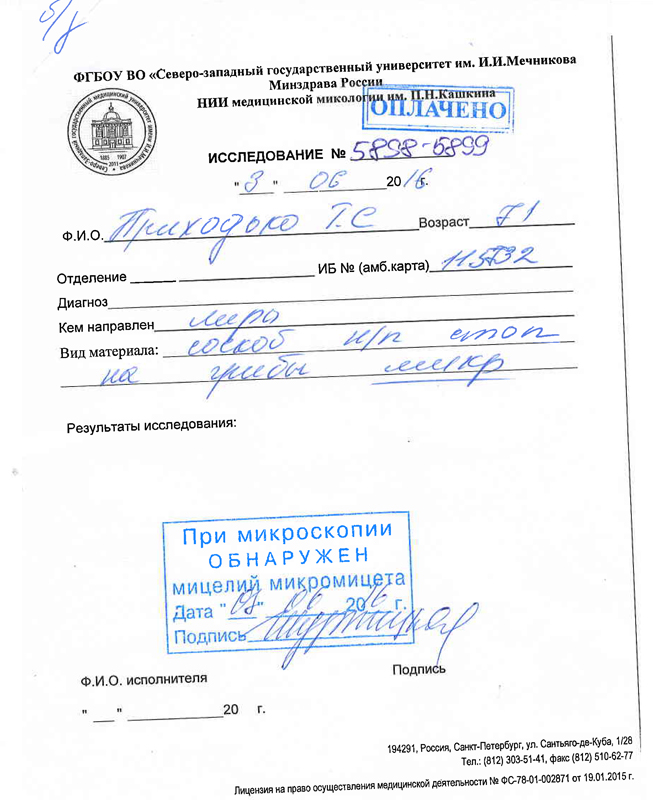 б/у
ФГБОУ ВО «Северо-западный государственный университет им. И.И.Мечникова
Минздрава России
НИИ медицинской микологии им. П.Н.Кашкина
ОПЛАЧЕНО
ИССЛЕДОВАНИЕ № 5898-5899
"3" 06 2016г.
Ф.И.О. Приходько Т.С Возраст 71
Отделение ИБ № (амб.карта) 115732
Диагноз
Кем направлен
Вид материала: соскоб н/п стоп
на грибы микр
Результаты исследования:
При микроскопии
ОБНАРУЖЕН
мицелий микромицета
Дата " " 06 2016 г.
Подпись
Ф.И.О. исполнителя Подпись
" " 20 г.
194291, Россия, Санкт-Петербург, ул. Сантьяго-де-Куба, 1/28
Тел.: (812) 303-51-41, факс (812) 510-62-77
Лицензия на право осуществления медицинской деятельности № ФС-78-01-002871 от 19.01.2015 г.